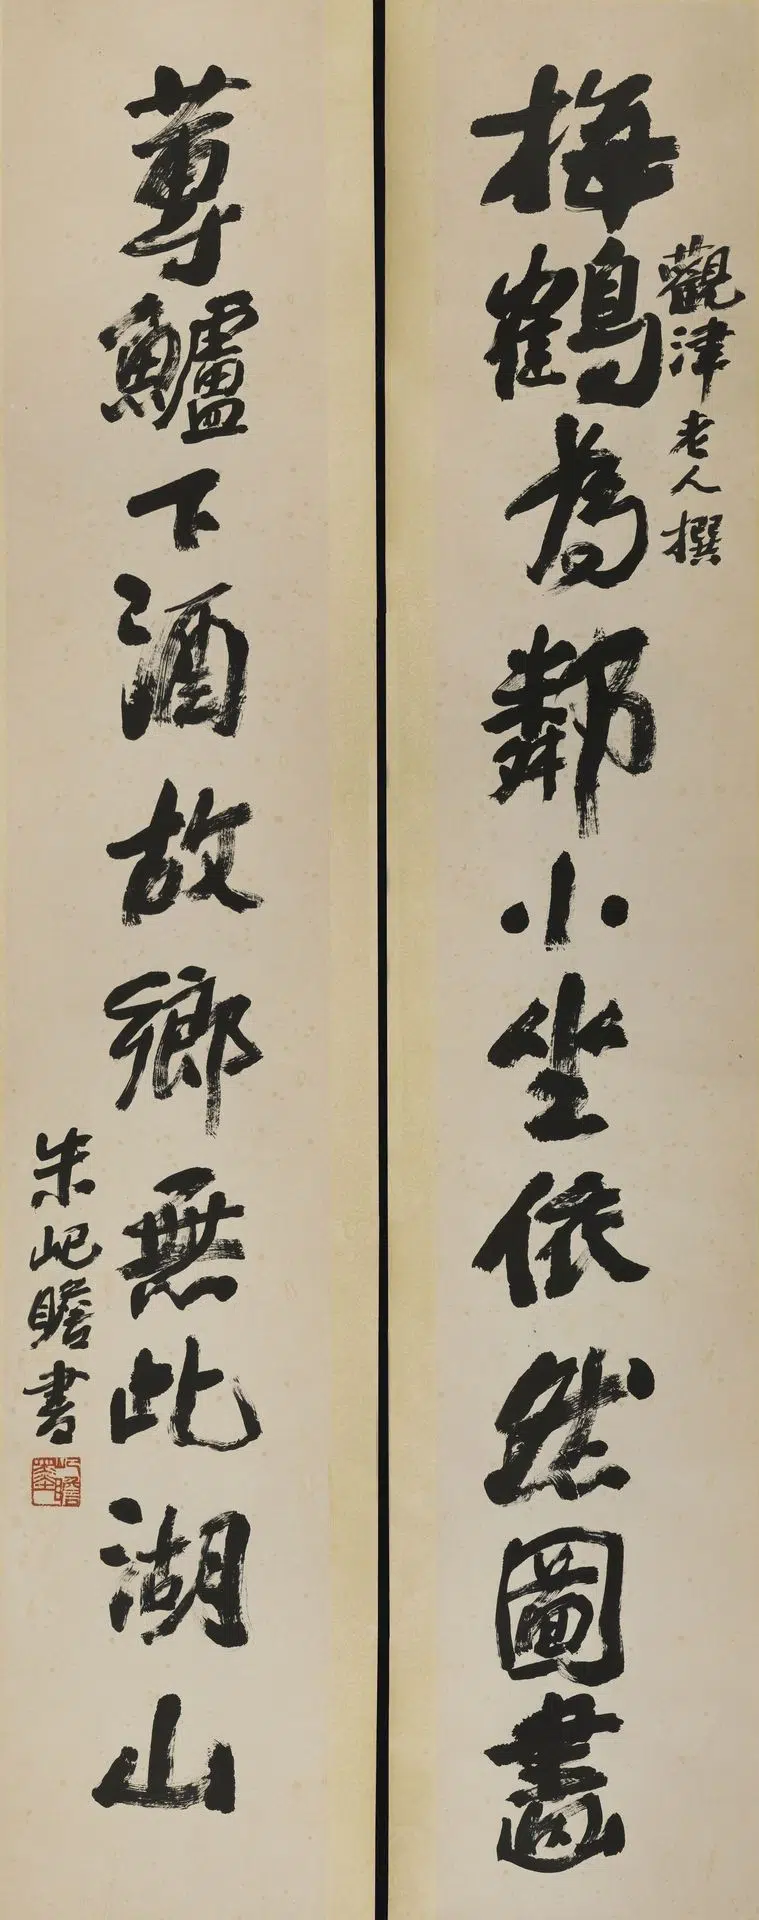 梅鶴為鄰小坐依然圖畫
觀津老人撰
蓴鱸下酒故鄉無此湖山
朱屺瞻書
屺瞻